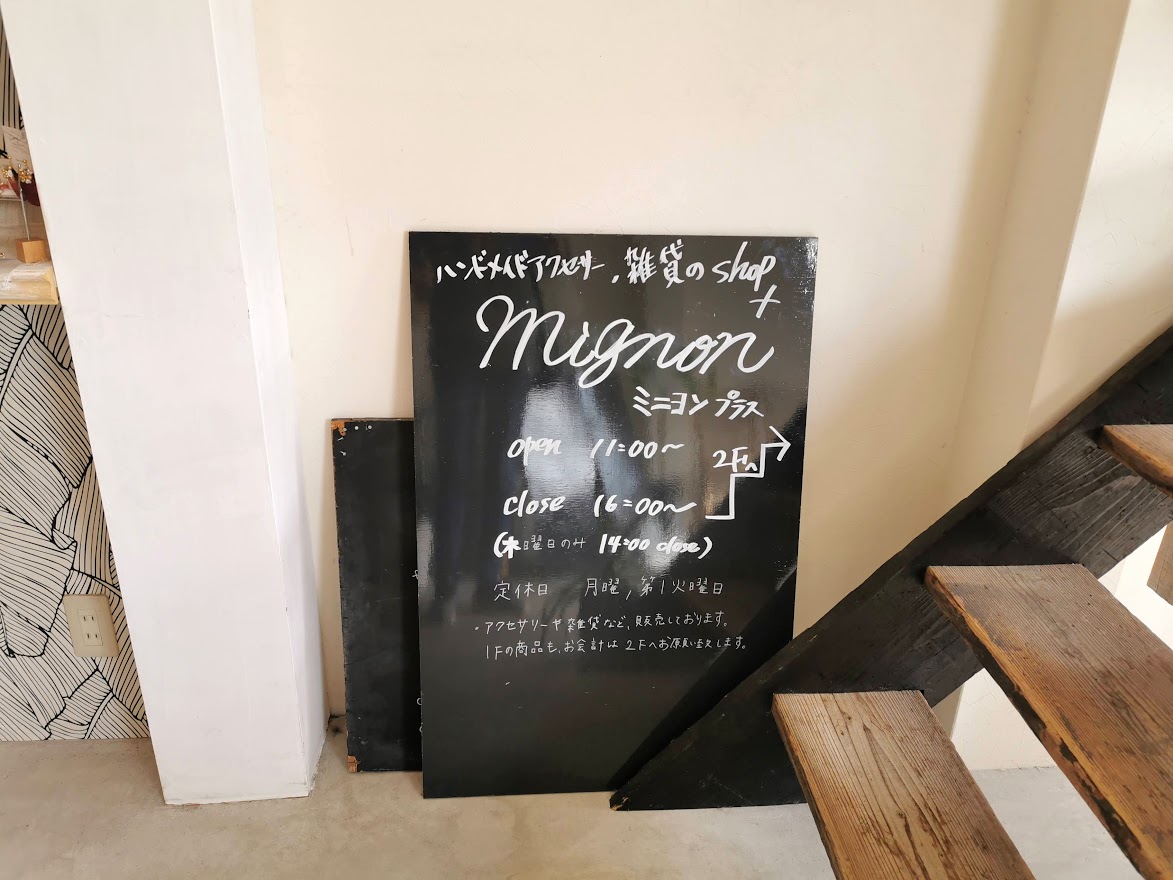 ハンドメイドアクセサリー、雑貨のshop
Mignon+
ミニヨンプラス
open 11:00〜
2Fへ
close 16:00〜
(木曜日のみ 14:00 close)
定休日 月曜,第1火曜日
・アクセサリーや雑貨など、販売しております。
1Fの商品も、お会計は2Fへお願い致します。